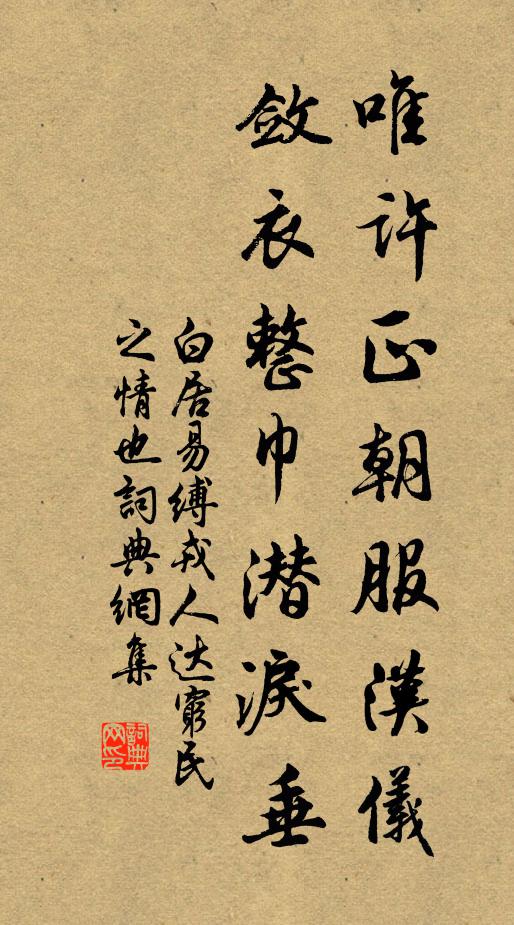 唯許正朝服漢儀
斂衣整巾潛淚垂
白居易縛戎人达窮民
之情也詞典網集
詞典
网印